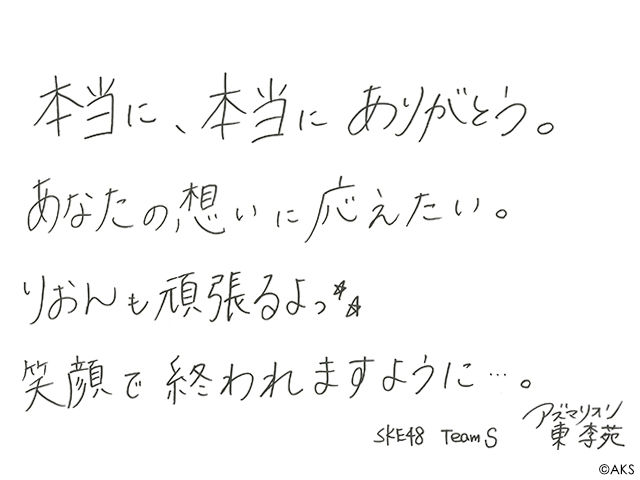 本当に、本当にありがとう。
あなたの想いに応えたい。
りおんも頑張るよっ☆☆
笑顔で終われますように…。
アズマリオン
SKE48 Team S 東 李苑
©AKS